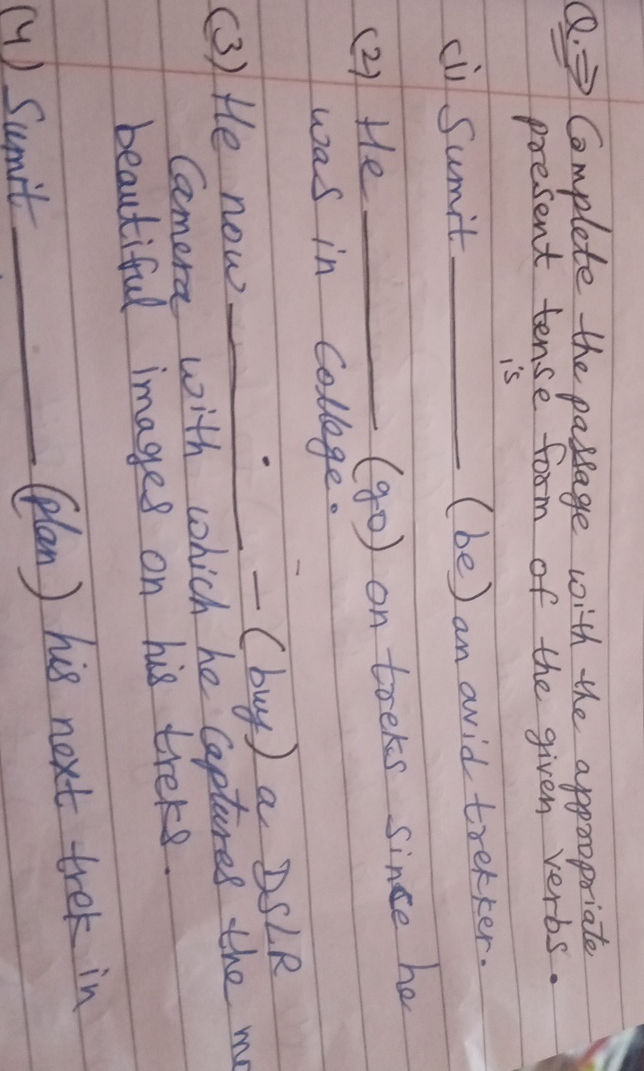 Q.⇒ Complete the passage with the appropriate
present tense form of the given verbs.
is
(1) Sumit ______ (be) an avid trekker.
(2) He ______ (go) on treks since he
was in College.
(3) He now ______ (buy) a DSLR
Camera with which he Captures the
beautiful images on his treks.
(4) Sumit ______ (plan) his next trek in